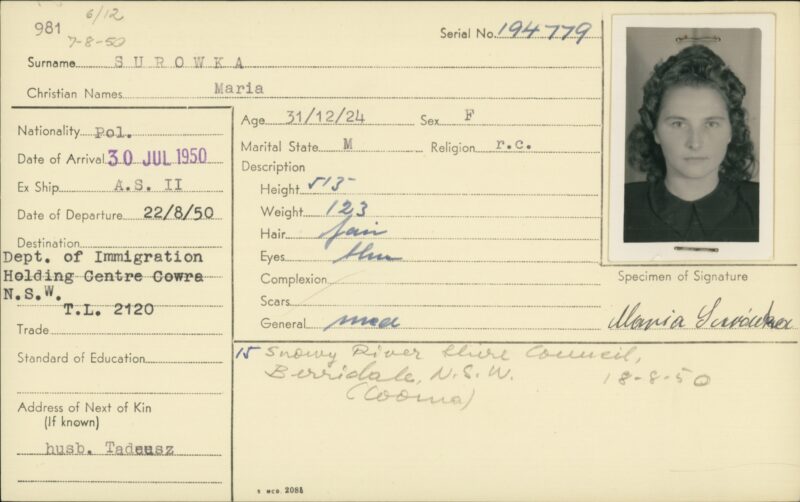 6/12
981
7-8-50
Serial No. 194779
Surname SUROWKA
Christian Names Maria
Nationality Pol.
Date of Arrival 30 JUL 1950
Ex Ship A.S. II
Date of Departure 22/8/50
Destination
Dept. of Immigration
Holding Centre Cowra
N.S.W.
T.L. 2120
Trade
Standard of Education
Address of Next of Kin
(If known)
husb. Tadeusz
Age 31/12/24 Sex F
Marital State M Religion r.c.
Description
Height 513
Weight 123
Hair fair
Eyes blue
Complexion
Scars
General med
Specimen of Signature
Maria Surówka
15 Snowy River Shire Council,
Berridale, N.S.W. 18-8-50
(Cooma)
2086